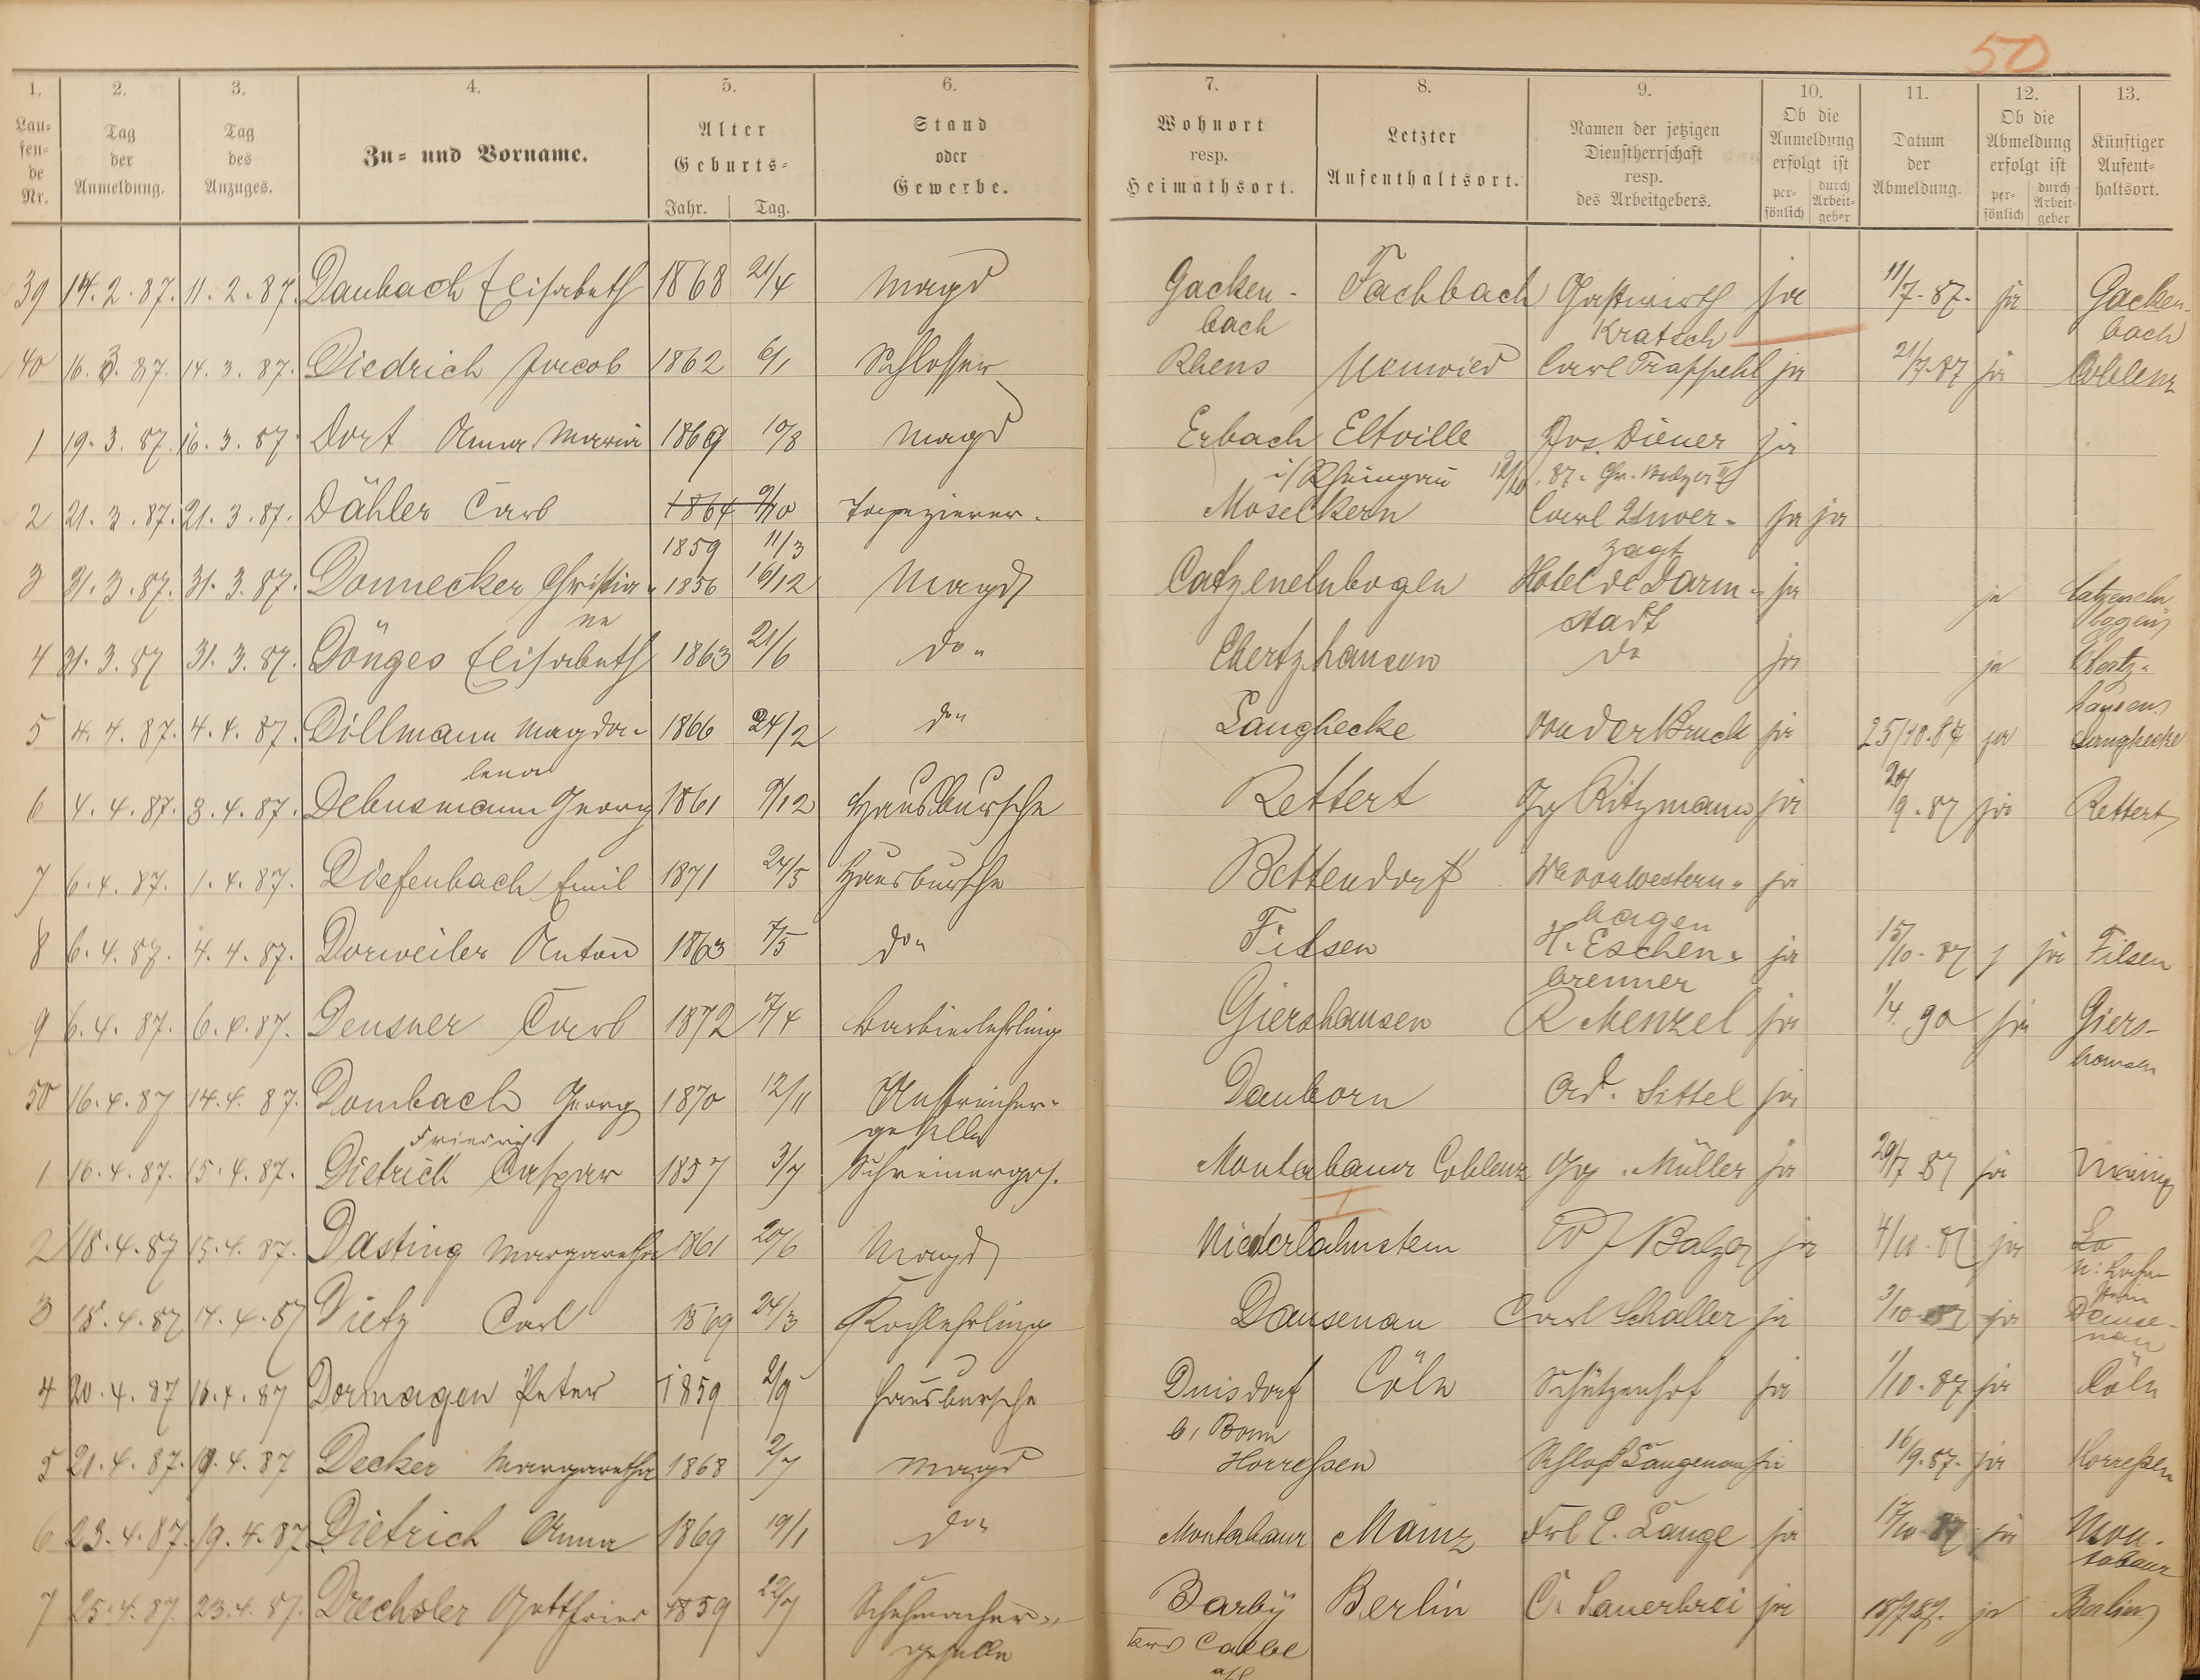 50
1. 2. 3. 4. 5. 6. 7. 8. 9. 10. 11. 12. 13.
Lau=fen=de Nr. Tag der Anmeldung. Tag des Anzuges. Zu= und Vorname. Alter Geburts= Jahr. Tag. Stand oder Gewerbe. Wohnort resp. Heimathsort. Letzter Aufenthaltsort. Namen der jetzigen Dienstherrschaft resp. des Arbeitgebers. Ob die Anmeldung erfolgt ist per=sönlich durch Arbeit=geber Datum der Abmeldung. Ob die Abmeldung erfolgt ist per=sönlich durch Arbeit=geber Künftiger Aufent=haltsort.
39 14. 2. 87. 11. 2. 87. Daubach Elisabeth 1868 21/4 Magd Gacken- Fachbach Gastwirth ja 11/7. 87. ja Gacken-
bach Kratsch bach
40 16. 3. 87. 14. 3. 87. Diedrich Jacob 1862 6/1 Schlosser Rhens Neuwied Carl Trappehl ja 21/7. 87 ja Coblenz
1 19. 3. 87. 16. 3. 87. Dort Anna Maria 1869 10/8 Magd Erbach Eltville Jos. Diener ja
i/Rheingau 12/10. 87.
2 21. 3. 87. 21. 3. 87. Dähler Carl 1864 9/10 Tapezierer. Moselkern Carl Unver- ja ja
1859 11/3 zagt
3 31. 3. 87. 31. 3. 87. Donnecker Christia- 1856 16/12 Magd Catzenelnbogen Hotel de Darm- ja ja Catzeneln
ne stadt boggen
4 31. 3. 87 31. 3. 87. Dönges Elisabeth 1863 21/6 do" Ebertzhausen do ja ja Ebertz-
hausen
5 4. 4. 87. 4. 4. 87. Dillmann Magda- 1866 24/2 do" Langhecke von der Bruck ja 25/10. 87 ja Langhecke
lena
6 4. 4. 87. 3. 4. 87. Debusmann Georg 1861 9/12 Hausbursche Rettert Gg Ritzmann ja 20/9. 87 ja Rettert
7 6. 4. 87. 1. 4. 87. Diefenbach Emil 1871 24/5 Hausbursche Bettendorf We von Western- ja
hagen
8 6. 4. 87. 4. 4. 87. Dorweiler Anton 1863 7/5 do" Filsen H. Eschen- ja 15/10. 87 ja Filsen
brenner
9 6. 4. 87. 6. 4. 87. Densner Carl 1872 7/4 Barbierlehrling Giershausen R Menzel ja 1/4. 90 ja Giers-
hausen
50 16. 4. 87 14. 4. 87. Dombach Georg 1870 12/11 Anstreicher- Dauborn Ad. Sittel ja
Friedrich geselle
1 16. 4. 87. 15. 4. 87. Dietrich Caspar 1857 3/7 Schreinerges. Montabaur Coblenz Gg. Müller ja 29/7. 87 ja Mainz
I
2 18. 4. 87 15. 4. 87. Dasting Margaretha 1861 20/6 Magd Niederlahnstein W J Balzer ja 4/10. 87 ja La
3 18. 4. 87 14. 4. 87 Dietz Carl 1869 24/3 Kochlehrling Dausenau Carl Schaller ja 3/10. 87 ja Dause-
nau
4 20. 4. 87 16. 4. 87 Dormagen Peter 1859 2/9 Hausbursche Duisdorf Cöln Schützenhof ja 1/10. 87 ja Cöln
b, Bonn
5 21. 4. 87. 19. 4. 87 Decker Margaretha 1868 2/7 Magd Horreßen Schloß Langenau ja 16/9. 87. ja Horreßen
6 23. 4. 87. 19. 4. 87 Dietrich Anna 1869 19/1 do" Montabaur Mainz Frl E. Lange ja 17/10 87 ja Mon-
tabaur
7 25. 4. 87. 23. 4. 87. Drechsler Gottfried 1859 22/7 Schuhmacher- Barby Berlin C. Sauerbrei ja 18/7. 87. ja Berlin
geselle Calbe
a/S